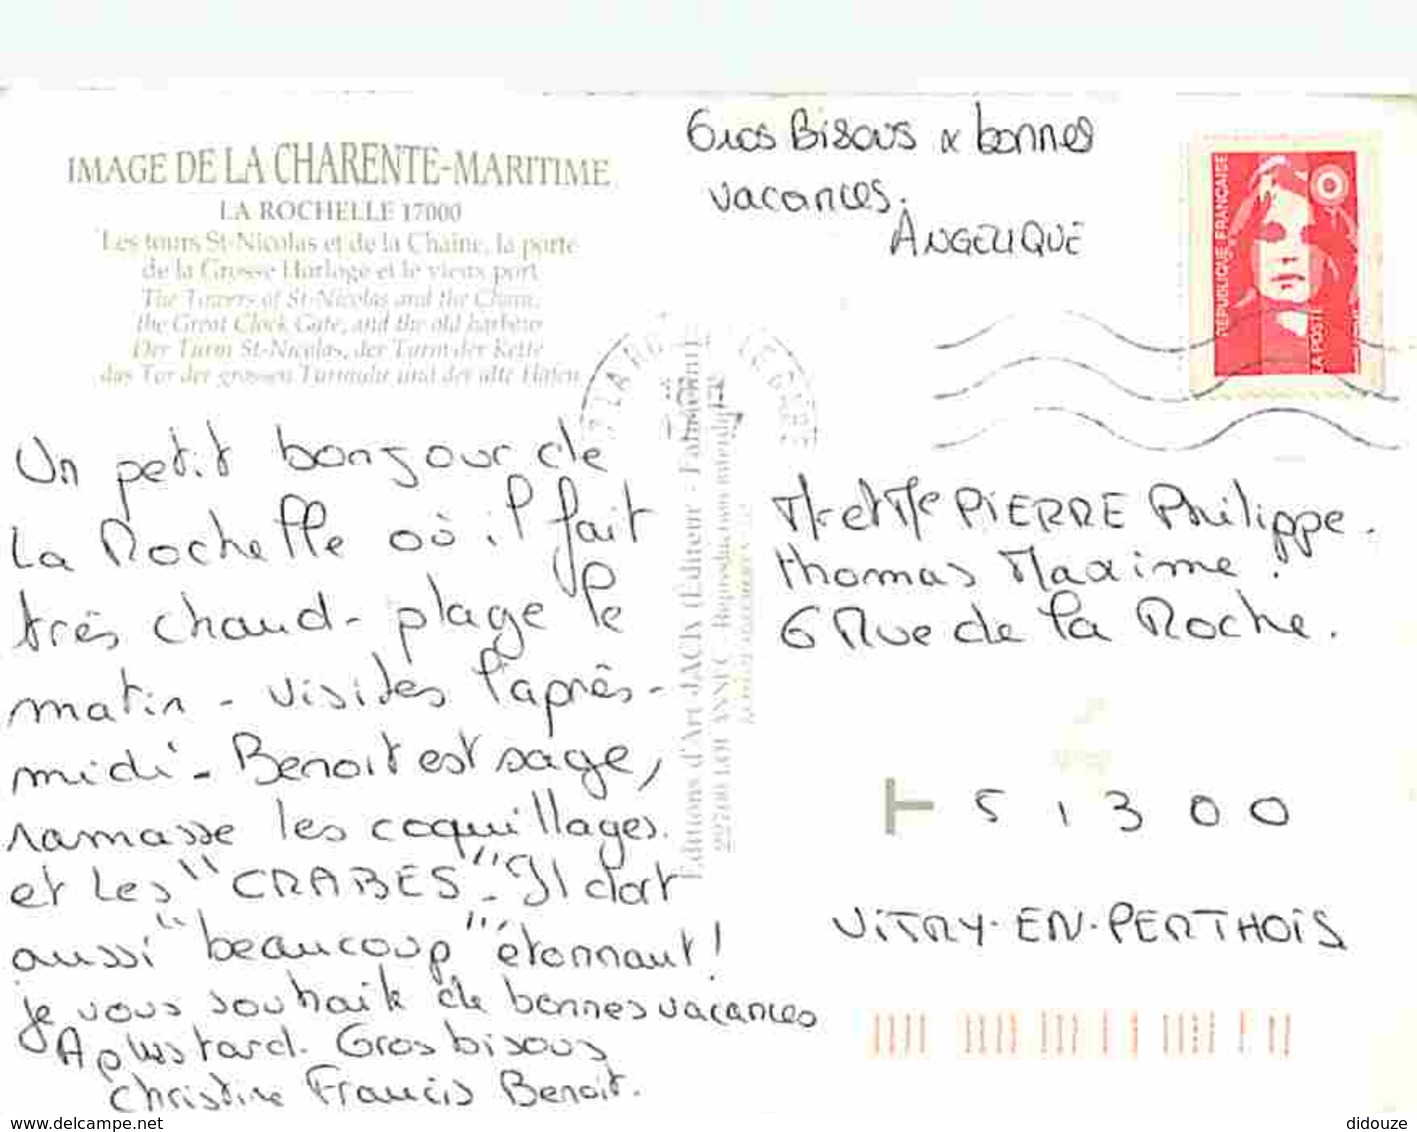 IMAGE DE LA CHARENTE-MARITIME
LA ROCHELLE 17000
Les tours St-Nicolas et de la Chaîne, la porte
de la Grosse Horloge et le vieux port
The Towers of St-Nicolas and the Chain,
the Great Clock Gate, and the old harbour
Der Turm St-Nicolas, der Turm der Kette
das Tor der grossen Turmuhr und der alte Hafen
Gros Bisous & bonnes
vacances.
ANGELIQUE
REPUBLIQUE FRANÇAISE
LA POSTE
Un petit bonjour de
La Rochelle où il fait
très chaud - plage le
matin - visites l'après-
midi - Benoit est sage,
ramasse les coquillages.
et les "CRABES" - Il dort
aussi "beaucoup" étonnant!
je vous souhaite de bonnes vacances
A plus tard. Gros bisous
Christine Francis Benoit.
Editions d'Art JACK (Editeur -
22700 LOUANNEC - Reproduction interdite
M. et Me PIERRE Philippe.
Thomas Maxime.
6 Rue de la Roche.
51300
VITRY-EN-PERTHOIS
https://www.delcampe.net
didouze